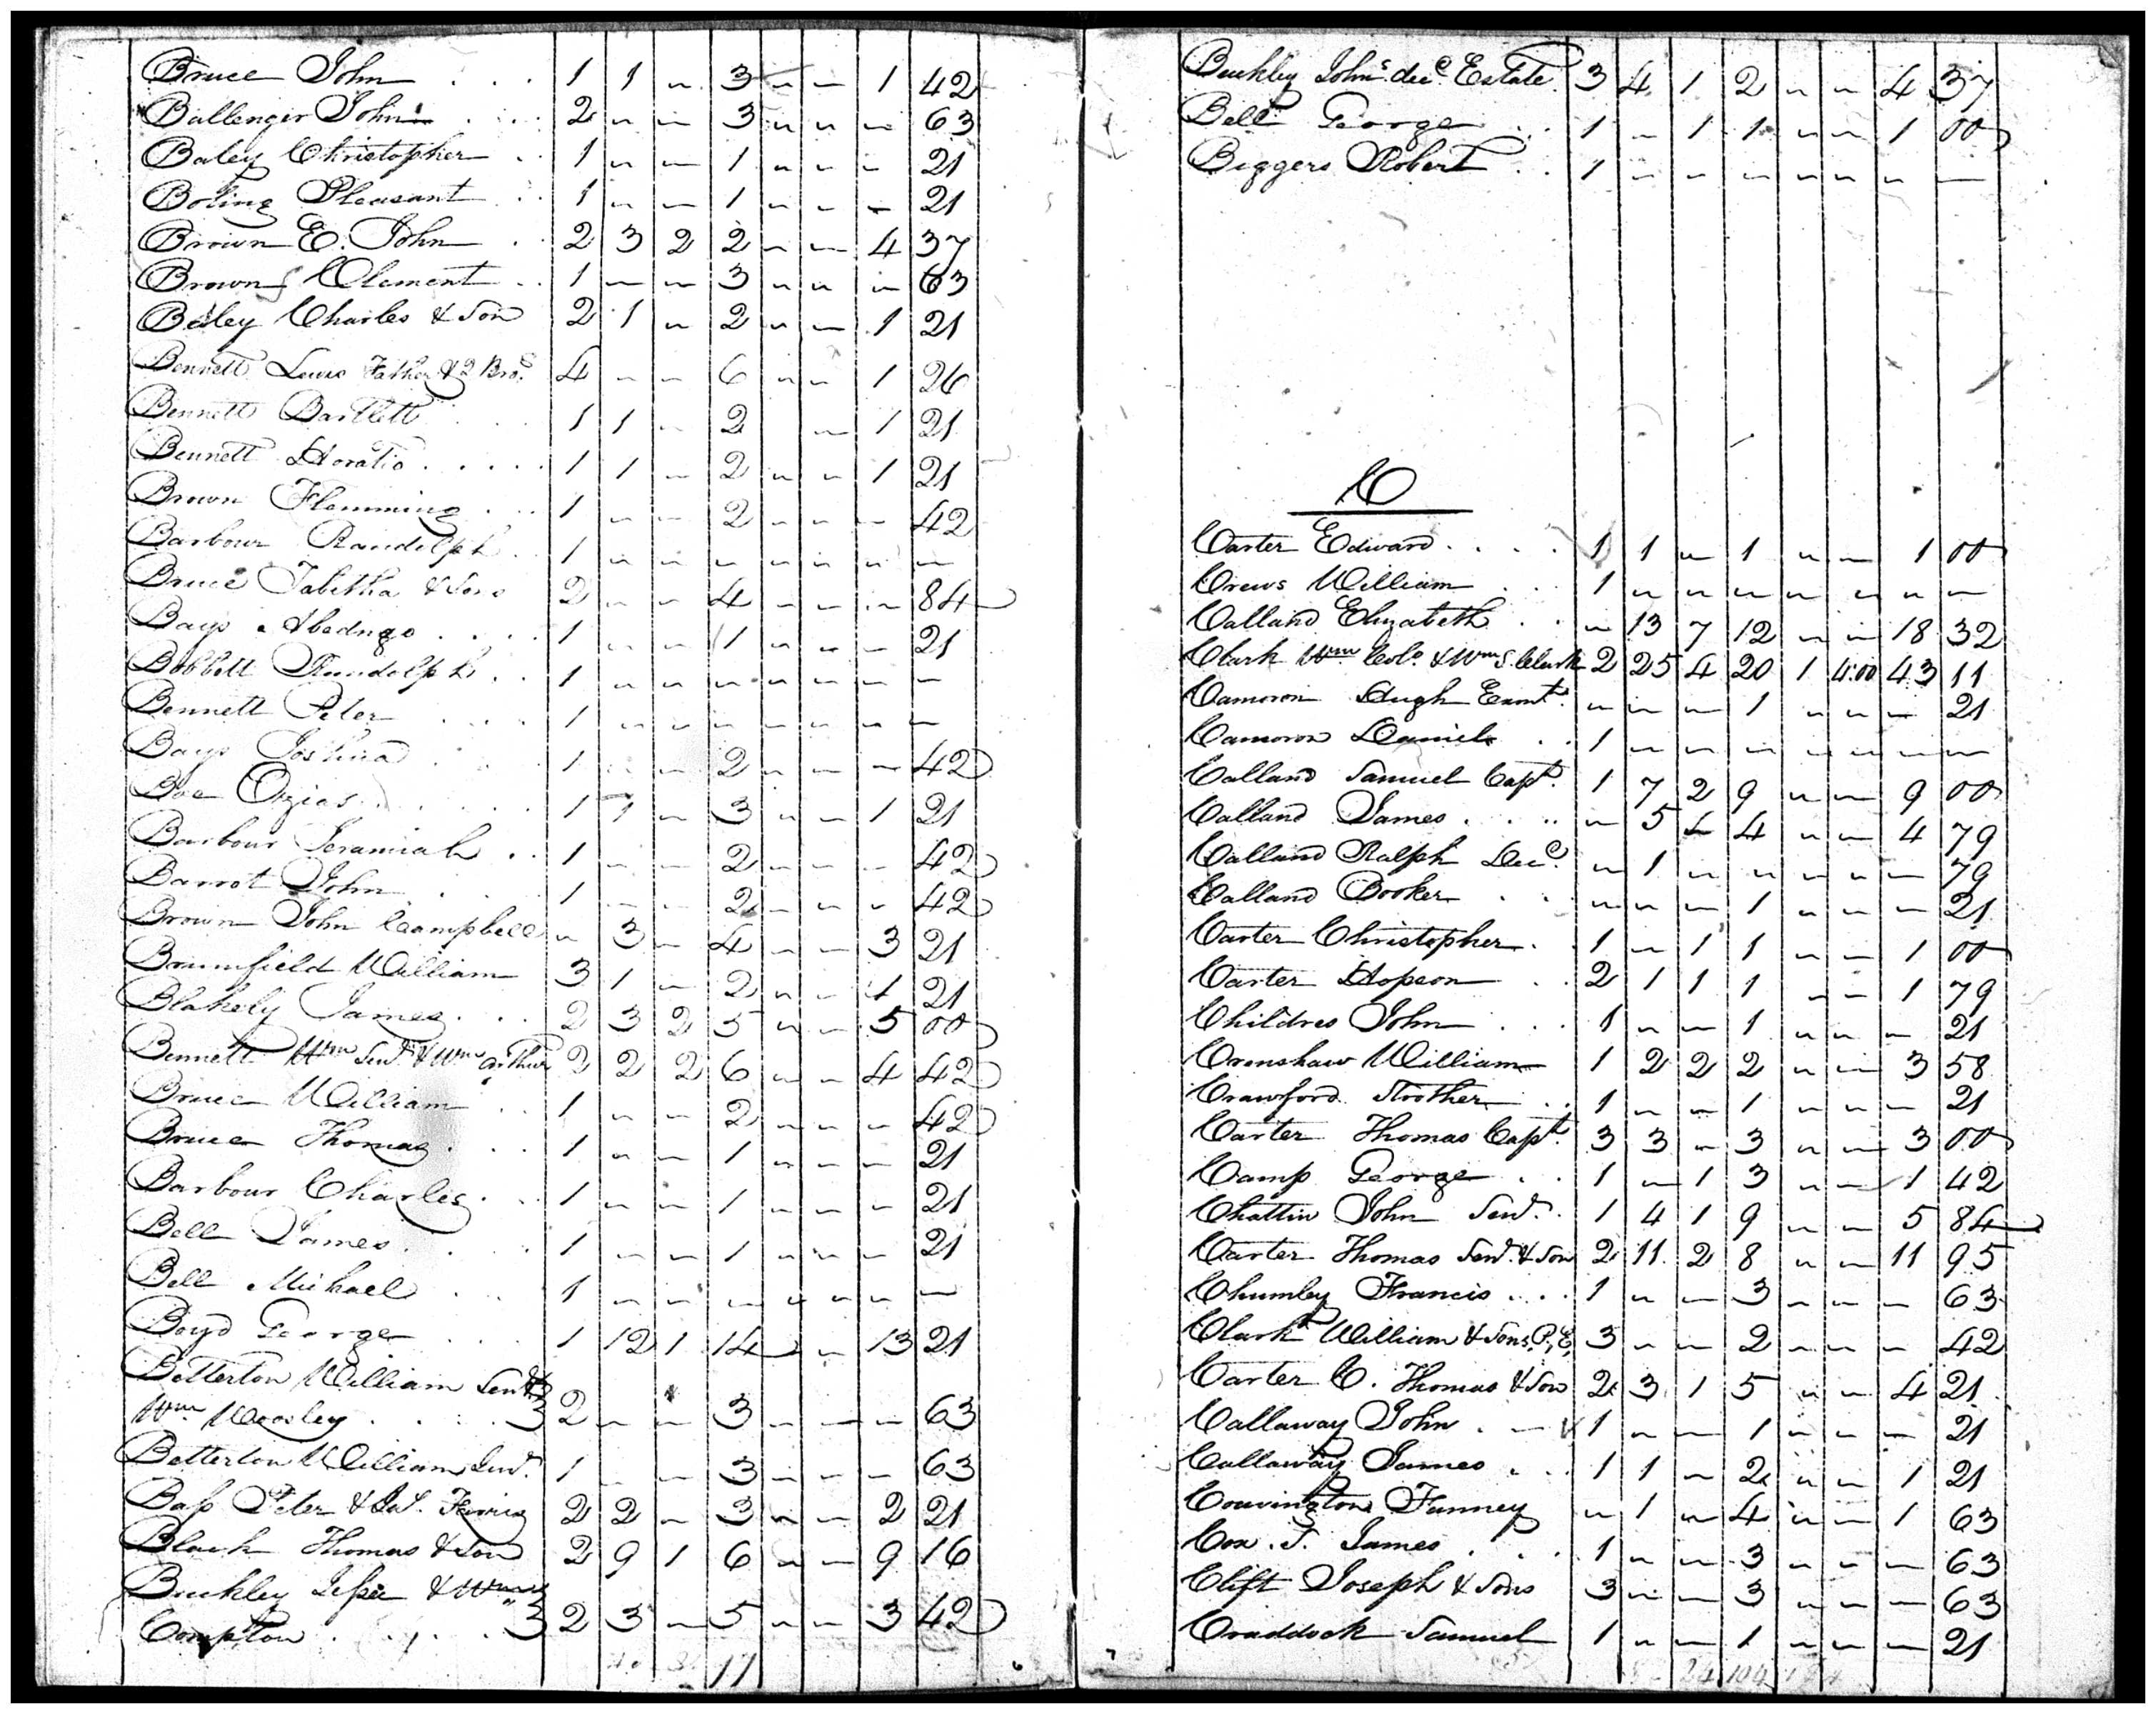 Bruce John . . . 1 1 " 3 " " 1 42
Ballenger John . . . 2 " " 3 " " " 63
Baley Christopher . . 1 " " 1 " " " 21
Boling Pleasant . . 1 " " 1 " " " 21
Brown E. John . 2 3 2 2 " " 4 37
Brown Clement . . 1 " " 3 " " " 63
Baley Charles & Son 2 1 " 2 " " 1 21
Bennett Lewis Father & 2 Bros. 4 " " 6 " " 1 26
Bennett Bartlett . . . 1 1 " 2 " 1 21
Bennett Horatio . . . . . 1 1 " 2 " " 1 21
Brown Flemming . . . 1 " " 2 " " " 42
Barbour Randolph . . 1 " " " " " " "
Bruce Tabitha & Sons 2 " " 4 " " " 84
Bays Abednego . . . . 1 " " 1 " " " 21
Bobbett Randolph . . 1 " " " " " " "
Bennett Peter . . . . 1 " " " " " " "
Bays Joshua . . . 1 " " 2 " " " 42
Boe Ozias . . . . . 1 1 " 3 " " 1 21
Barbour Jeramiah . . 1 " " 2 " " " 42
Barrot John . . . 1 " " 2 " " " 42
Brown John Campbell " 3 " 4 " " 3 21
Brumfield William 3 1 " 2 " " 1 21
Blakely James . . . 2 3 2 5 " " 5 00
Bennett Wm Senr. & Wm Arthur 2 2 2 6 " " 4 42
Bruce William . . 1 " " 2 " " " 42
Bruce Thomas . . . 1 " " 1 " " " 21
Barbour Charles . . . 1 " " 1 " " " 21
Bell James . . . . 1 " " 1 " " " 21
Bell Michael . . . 1 " " " " " " "
Boyd George . . . 1 12 1 14 " " 13 21
Betterton William Senr. &
Wm Mosley . . . . 2 " " 3 " " " 63
Betterton William Junr. 1 " " 3 " " " 63
Bass Peter & 2 2 " 3 " " 2 21
Black Thomas & Son 2 9 1 6 " " 9 16
Buckley Jesse & Wm
Compton . . . . 2 3 " 5 " " 3 42
Buckley Johns. decd. Estate 3 4 1 2 " " 4 37
Bell George . . . 1 " 1 1 " " 1 00
Biggers Robert . . 1 " " " " " " "
C
Carter Edward . . . . . 1 1 " 1 " " 1 00
Crews William . . . 1 " " " " " " "
Calland Elizabeth . . " 13 7 12 " " 18 32
Clark Wm Colo. & Wm S. Clark 2 25 4 20 1 4.00 43 11
Camoron Hugh " " " 1 " " " 21
Camoron Daniel . . 1 " " " " " " "
Calland Samuel Capt. 1 7 2 9 " " 9 00
Calland James . . . . . " 5 " 4 " " 4 79
Calland Ralph Decd. " 1 " " " " " 79
Calland Booker . . " " " 1 " " " 21
Carter Christopher . . 1 " 1 1 " " 1 00
Carter Hopson . . 2 1 1 1 " " 1 79
Childres John . . . 1 " " 1 " " " 21
Crenshaw William 1 2 2 2 " " 3 58
Crawford Strother . . 1 " " 1 " " " 21
Carter Thomas Capt. 3 3 " 3 " " 3 00
Camp George . . 1 " 1 3 " " 1 42
Chattin John Senr. . 1 4 1 9 " " 5 84
Carter Thomas Senr. & Son 2 11 2 8 " " 11 95
Chumley Francis . . . . 1 " " 3 " " " 63
Clark William & Sons, P., E, 3 " " 2 " " " 42
Carter C. Thomas & Son 2 3 1 5 " " 4 21
Callaway John . 1 " " 1 " " " 21
Callaway James . . . 1 1 " 2 " " 1 21
Couvington Fanney " 1 " 4 " " 1 63
Cox . T. James . . . . 1 " " 3 " " " 63
Clift Joseph & Sons 3 " " 3 " " " 63
Craddock Samuel 1 " " 1 " " " 21